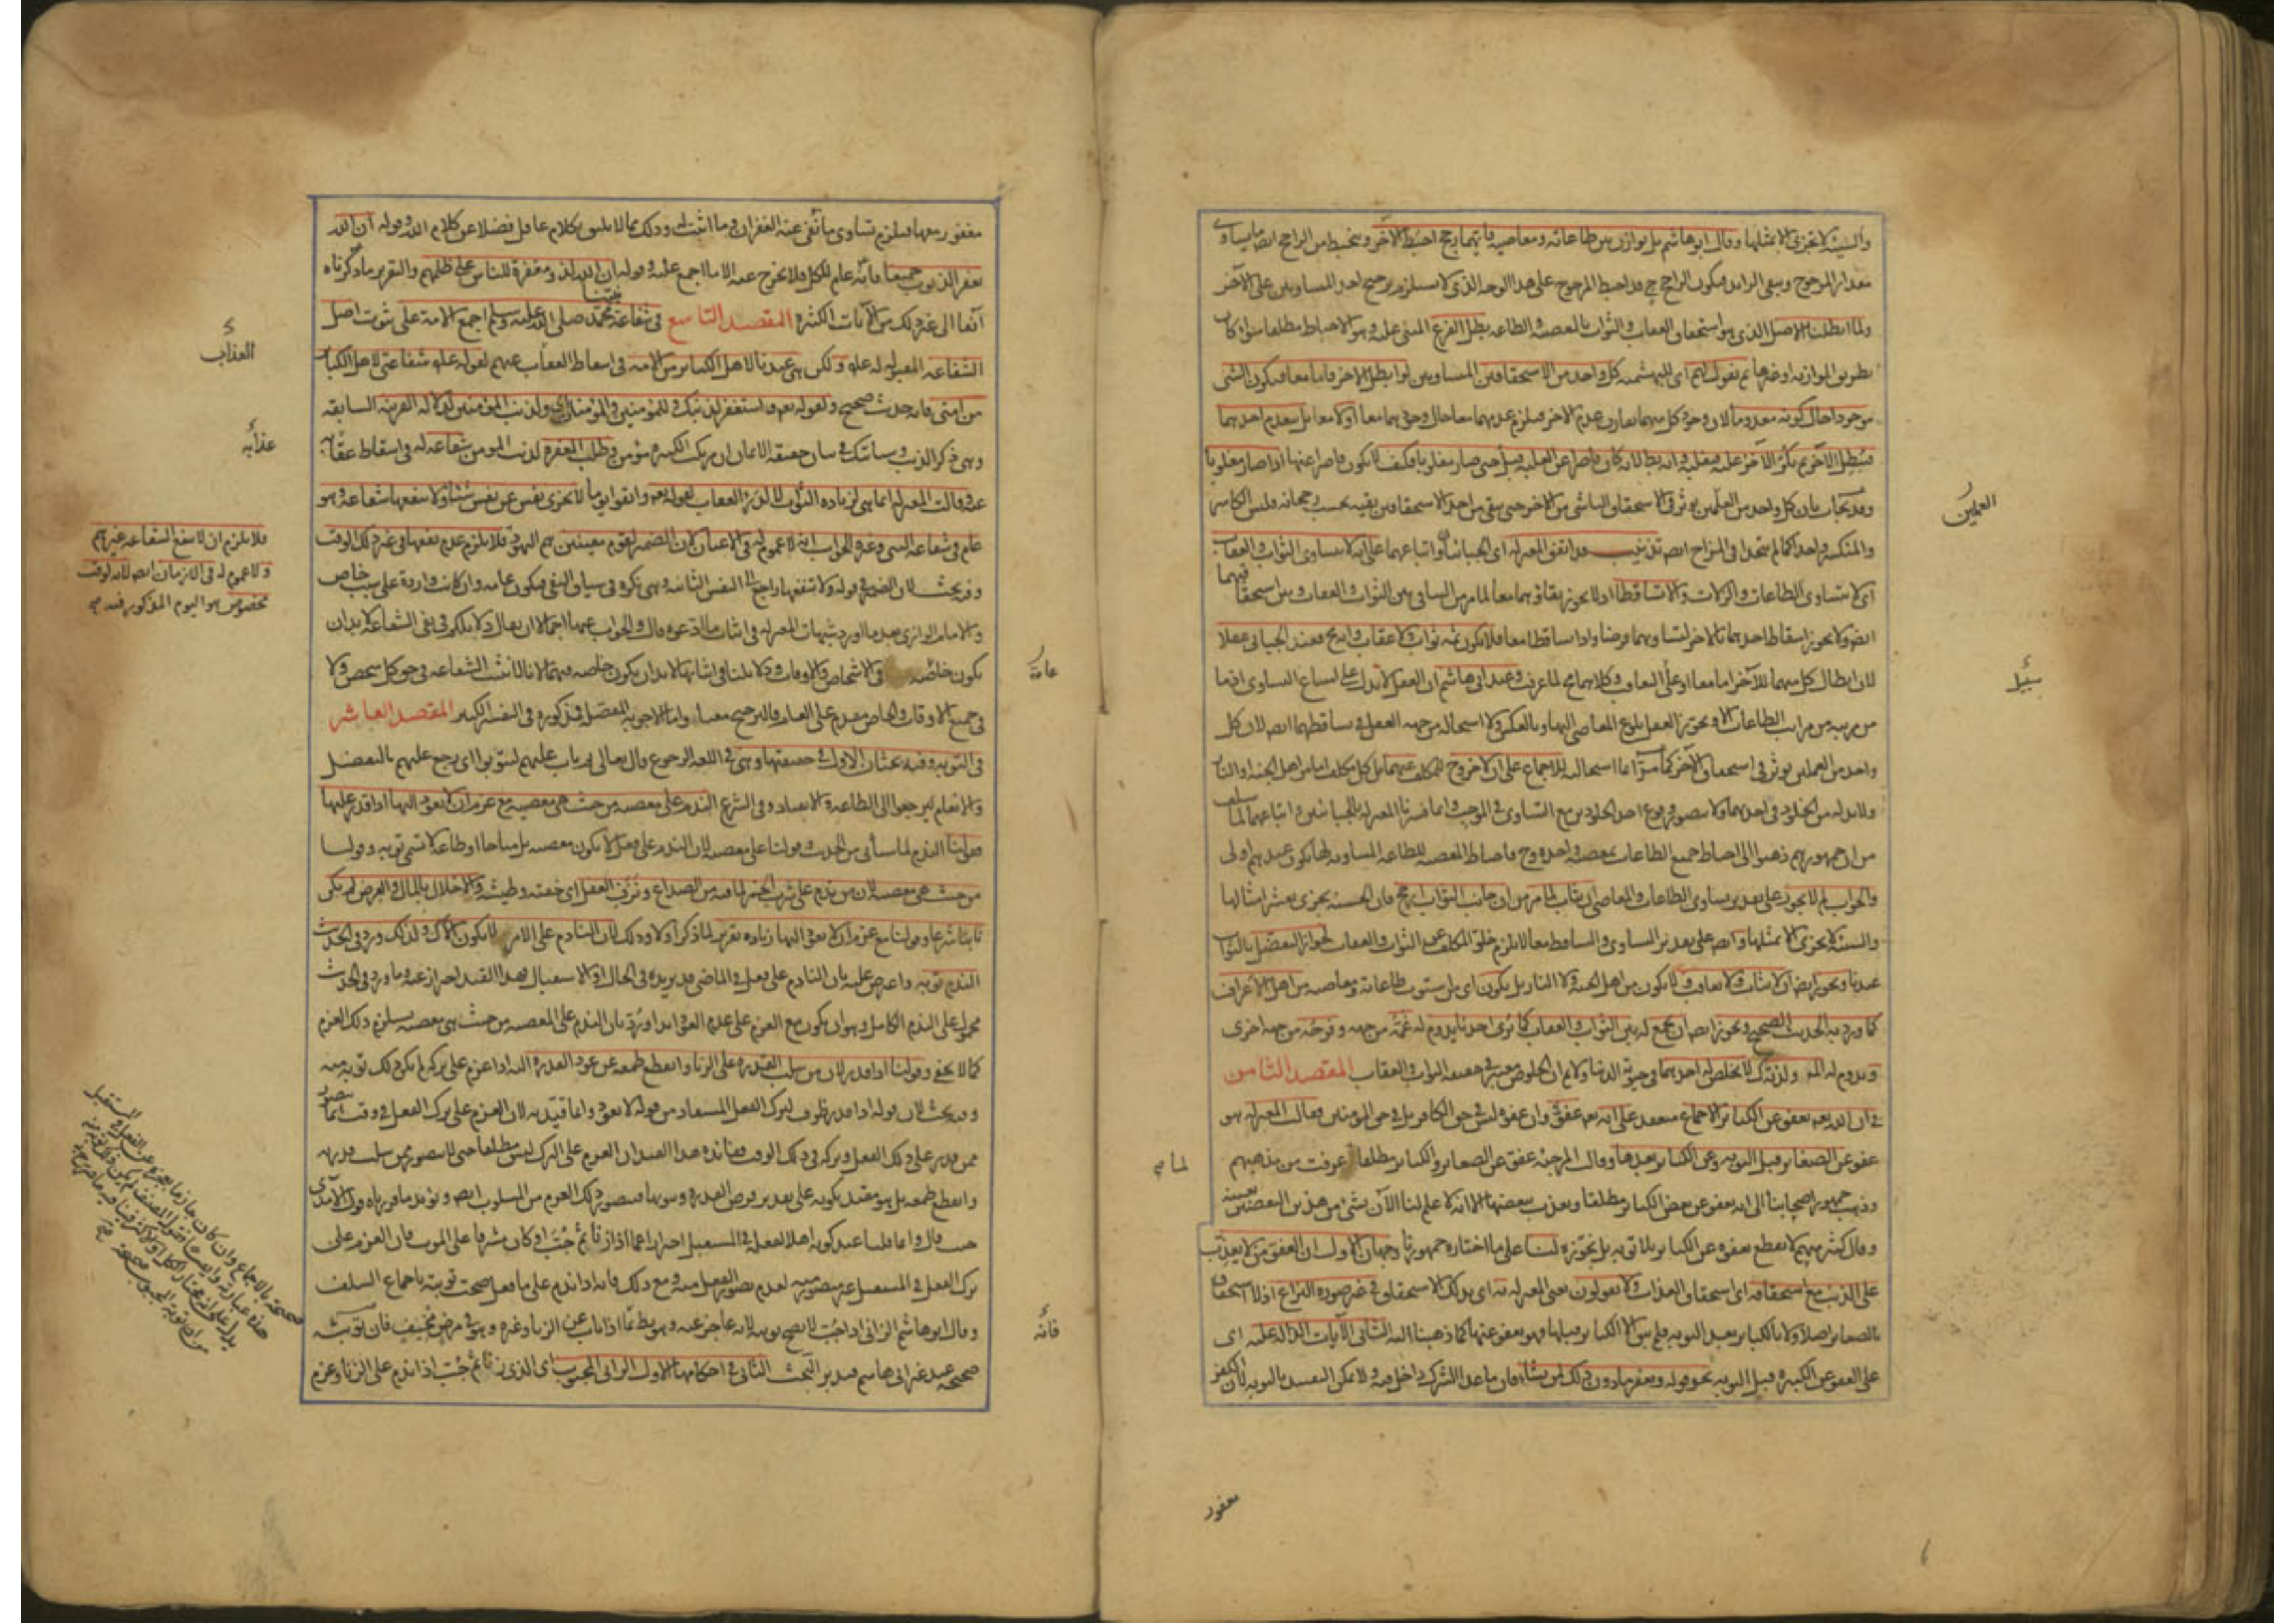 والسيئة لا تجزى الا بمثلها وقال ابو هاشم بل يوازن بين طاعاته ومعاصيه فايهما رجح احبط الآخر وينحبط من الراجح ايضا ما يساوى
مقدار المرجوح ويبقى الزايد فيكون الراجح ح قد احبط المرجوح على هذا الوجه الذى لا يستلزم ترجيح احد المتساويين على الآخر
ولما ابطلنا الاصل الذى هو استحقاق العقاب والثواب بالمعصية والطاعة بطل الفرع المبنى عليه وهو الاحباط مطلقا سواء كان
بطريق الموازنة او غيرها ثم نقول لهم اى للبهشمية كل واحد من الاستحقاقين المتساويين لو ابطل الآخر فاما معا فيكون الشى
موجودا حال كونه معدوما لان وجود كل منهما يقارن عدم الآخر فيلزم عدمهما معا حال وجودهما معا او لا معا بل ينعدم احدهما
فيبطل الآخر ثم يكر الآخر عليه فيغلبه وانه باطل لانه كان قاصرا عن الغلبة قبل حتى صار مغلوبا فكيف لا يكون قاصرا عنها اذا صار مغلوبا
وقد يجاب بان كل واحد من العملين يوثر فى الاستحقاق الناشى من الآخر حتى يبقى من احد الاستحقاقين بقية بحسب رجحانه فليس الكاسر
والمنكسر واحدا كما لم يتحدا فى المزاج ايضا تذنيب قد اتفق المعتزلة اى الجبائيان واتباعهما على انه لا يتساوى الثواب والعقاب
اى لا يتساوى الطاعات والزلات والا تساقطا اذ لا يجوز بقاؤهما معا لما مر من التنافى بين الثواب والعقاب وبين استحقاقيهما
ايضا ولا يجوز اسقاط احدهما بالآخر لتساويهما فرضا واذا تساقطا معا فلا يكون ثمه ثواب ولا عقاب وانه مح فعند الجبائى عقلا
لان ابطال كل منهما للآخر اما معا او على التعاقب وكلاهما مح لما عرفت وعند ابى هاشم ان العقل لا يدل على امتناع التساوى اذ ما
من مرتبة من مراتب الطاعات الا ويجوز العقل بلوغ المعاصى اليها وبالعكس ولا استحالة من جهة العقل فى تساقطهما ايضا لان كل
واحد من العملين يوثر فى استحقاق الآخر كما مر آنفا استحالته للاجماع على ان لا خروج للمكلف عنهما بل كل مكلف اما من اهل الجنة او النار
ولا بد له من الخلود فى احدهما ولا يتصور وقوع احد الخلودين مع التساوى فى الموجب وانما فسرنا المعتزلة بالجبائيين واتباعهما لما سلف
من ان جمهورهم ذهبوا الى احباط جميع الطاعات بمعصية واحدة وح فاحباط المعصية للطاعة المساوية لها يكون عندهم اولى
والجواب لم لا يجوز على تقدير تساوى الطاعات والمعاصى ان يثاب لما مر من ان جانب الثواب ارجح فان الحسنة تجزى بعشر امثالها
والسيئة لا تجزى الا بمثلها وايضا على تقدير التساوى والتساقط معا لا يلزم خلو المكلف عن الثواب والعقاب لجواز التفضل بالثواب
عندنا ويجوز ايضا ان لا يثاب ولا يعاقب ولا يكون من اهل الجنة ولا النار بل يكون اى من يستوى طاعاته ومعاصيه من اهل الاعراف
كما ورد به الحديث الصحيح ويجوز ايضا ان يجمع له بين الثواب والعقاب كما نرى احدنا يدوم له غمه من جهة وفرحه من جهة اخرى
ويدوم له الم ولذة لا يخلص له احدهما فى حيوة الدنيا ولا نم ان الخلوص معتبر فى حقيقة الثواب والعقاب المقصد الثامن
فى ان الله تعه يعفو عن الكبائر الاجماع منعقد على انه تعه عفو وان عفوه ليس فى حق الكافر بل فى حق المومنين فقالت المعتزلة هو
عفو عن الصغائر قبل التوبة وعن الكبائر بعدها وقالت المرجئة عفو عن الصغائر والكبائر مطلقا عرفت من مذهبهم
وذهب جمهور اصحابنا الى انه يعفو عن بعض الكبائر مطلقا ويعذب ببعضها الا انه لا علم لنا الآن بشئ من هذين البعضين بعينه
وقال كثير منهم لا نقطع بعفوه عن الكبائر بلا توبة بل نجوزه لنا على ما اختاره جمهورنا وجهان الاول ان العفو من لا يعذب
على الذنب مع استحقاقه اى استحقاق العذاب ولا يقولون يعنى المعتزلة به اى بذلك الاستحقاق فى غير صورة النزاع اذ لا استحقاق
بالصغائر اصلا ولا بالكبائر بعد التوبة فلم يبق الا الكبائر قبلها فهو يعفو عنها كما ذهبنا اليه الثانى الآيات الدالة عليه اى
على العفو عن الكبيرة قبل التوبة نحو قوله ويغفر ما دون ذلك لمن يشاء فان ما عدا الشرك داخل فيه ولا يمكن التقييد بالتوبة لان الكفر
العملين
سبيل
لما مر
مغفور
مغفور معها فيلزم تساوى ما نفى عنه الغفران وما اثبت له وذلك مما لا يليق بكلام عاقل فضلا عن كلام الله وقوله ان الله
يغفر الذنوب جميعا فانه عام للكل فلا يخرج عنه الا ما اجمع عليه وقوله ان الله لذو مغفرة للناس على ظلمهم والتقرير ما ذكرناه
آنفا الى غير ذلك من الآيات الكثيرة المقصد التاسع فى شفاعة نبينا محمد صلى الله عليه وسلم اجمع الامة على ثبوت اصل
الشفاعة المقبولة له عليه ولكن هى عندنا لاهل الكبائر من الامة فى اسقاط العقاب عنهم لقوله عليه شفاعتى لاهل الكبائر
من امتى فانه حديث صحيح ولقوله تعه واستغفر لذنبك وللمؤمنين والمؤمنات اى ولذنب المؤمنين لدلالة القرينة السابقة
وهى ذكر الذنب وسياتيك فى بيان حقيقة الايمان ان مرتكب الكبيرة مؤمن وطلب المغفرة لذنب المومن شفاعة له فى اسقاط عقابه
عنه وقالت المعتزلة انما هى لزيادة الثواب لا لدرء العقاب لقوله تعه واتقوا يوما لا تجزى نفس عن نفس شيئا ولا تنفعها شفاعة وهو
عام فى شفاعة النبى وغيره الجواب انه لا عموم له فى الاعيان لان الضمير لقوم معينين هم اليهود فلا يلزم عدم نفعها فى غير ذلك الوقت
وفيه بحث لان الضمير فى قوله ولا تنفعها راجع الى النفس الثانية وهى نكرة فى سياق النفى فيكون عامة وان كانت واردة على سبب خاص
والامام الرازى بعد ما اورد شبهات المعتزلة فى اثبات ما ادعوه قال والجواب عنها اجمالا ان يقال دلائلكم فى نفى الشفاعة لا بد ان
يكون خاصة فى الاشخاص والاوقات ودلائلنا فى اثباتها لا بد ان يكون خاصة فيهما لانا لا نثبت الشفاعة فى حق كل شخص ولا
فى جميع الاوقات والخاص مقدم على العام فالترجيح معنا واما الاجوبة المفصلة فمذكورة فى التفسير الكبير المقصد العاشر
فى التوبة وفيه بحثان الاول فى حقيقتها وهى فى اللغة الرجوع قال تعالى ثم تاب عليهم ليتوبوا اى رجع عليهم بالتفضل
والانعام ليرجعوا الى الطاعة والانقياد وفى الشرع الندم على معصية من حيث هى معصية مع عزم ان لا يعود اليها اذا قدر عليها
فقولنا الندم لما سياتى من الحديث وقولنا على معصية لان الندم على فعل لا يكون معصية بل مباحا او طاعة لا تسمى توبة وقولنا
من حيث هى معصية لان من ندم على شرب الخمر لما فيه من الصداع ونزف العقل اى خفته وطيشه والاخلال بالمال والعرض لم يكن
تائبا شرعا وقولنا مع عزم ان لا يعود اليها زيادة تقرير لما ذكر اولا وذلك لان النادم على الامر لا يكون الا كذلك ولذلك ورد فى الحديث
الندم توبة واعترض عليه بان النادم على فعل فى الماضى قد يريده فى الحال او الاستقبال فهذا القيد احتراز عنه وما ورد فى الحديث
محمول على الندم الكامل وهو ان يكون مع العزم على عدم العود ابدا ورد بان الندم على المعصية من حيث هى معصية يستلزم ذلك العزم
كما لا يخفى وقولنا اذا قدر لان من سلب القدرة على الزنا وانقطع طمعه عن عود القدرة اليه اذا عزم على تركه لم يكن ذلك توبة منه
وفيه بحث لان قوله اذا قدر ظرف لترك الفعل المستفاد من قوله لا يعود وانما قيد به لان العزم على ترك الفعل فى وقت انما يتصور
ممن قدر على ذلك الفعل وتركه فى ذلك الوقت ففائدة هذا القيد ان العزم على الترك ليس مطلقا حتى لا يتصور ممن سلب قدرته
وانقطع طمعه بل هو مقيد بكونه على تقدير فرض القدرة وثبوتها فيتصور ذلك العزم من المسلوب ايضا ويؤيد ما قررناه قول الآمدى
حيث قال وانما قلنا عند كونه اهلا لفعله فى المستقبل احترازا عما اذا زنى ثم جب او كان مشرفا على الموت فان العزم على
ترك الفعل فى المستقبل غير متصور منه لعدم تصور الفعل منه ومع ذلك فانه اذا ندم على ما فعل صحت توبته باجماع السلف
وقال ابو هاشم الزانى اذا جب لا تصح توبته لانه عاجز عنه وهو بط بما اذا تاب عن الزنا وغيره وهو فى مرض مخيف فان توبته
صحيحة عند غير ابى هاشم فتدبر البحث الثانى فى احكامها الاول الزانى المجبوب اى الذى زنى ثم جب اذا ندم على الزنا وعزم
العذاب
عذابه
فلا يلزم ان لا تنفع الشفاعة غيرهم
ولا عموم له فى الازمان ايضا لانه لوقت
مخصوص هو اليوم المذكور فيه
عامة
فانه